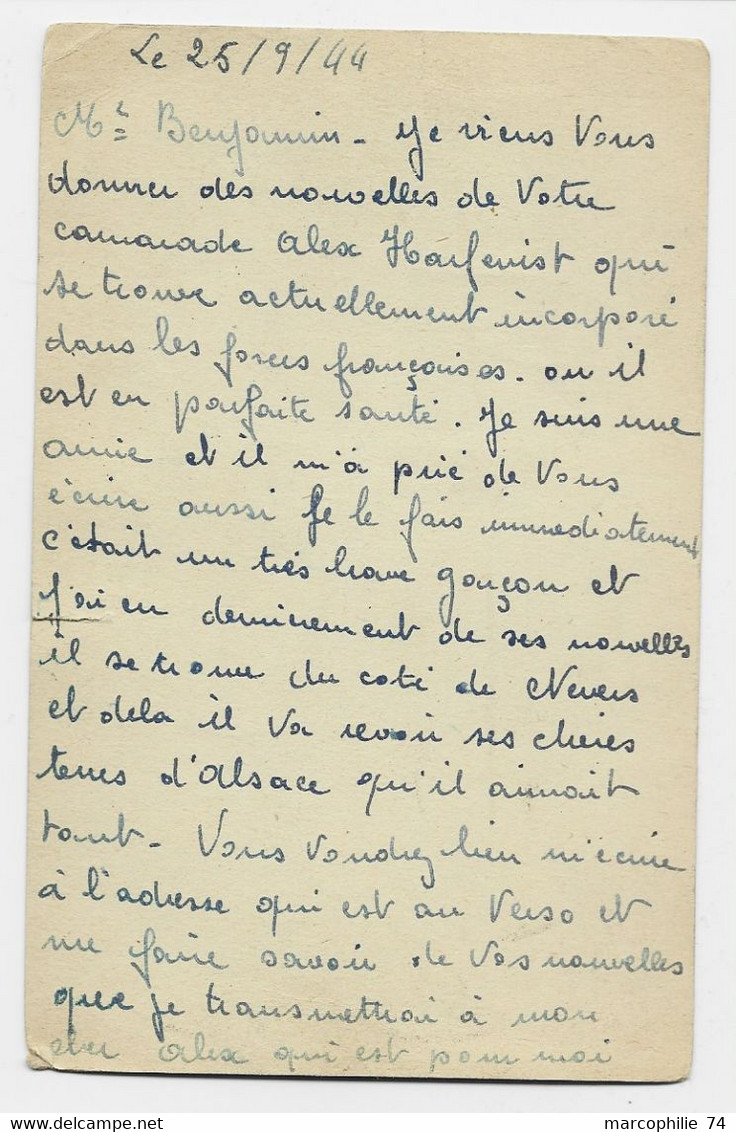 Le 25/9/44
Mr Benjamin - Je viens Vous
donner des nouvelles de Votre
camarade Alex Harfenist qui
se trouve actuellement incorporé
dans les forces françaises. ou il
est en parfaite santé. Je suis une
amie et il m'à prié de Vous
écrire aussi Je le fais immediatement
c'était un très brave garçon et
j'ai eu dernierement de ses nouvelles
il se trouve du coté de Nevers
et dela il va revoir ses chères
terres d'Alsace qu'il aimait
tant - Vous Voudrez bien m'écrire
à l'adresse qui est au Verso et
me faire savoir de Vos nouvelles
que je transmettrai à mon
cher Alex qui est pour moi
marcophilie 74